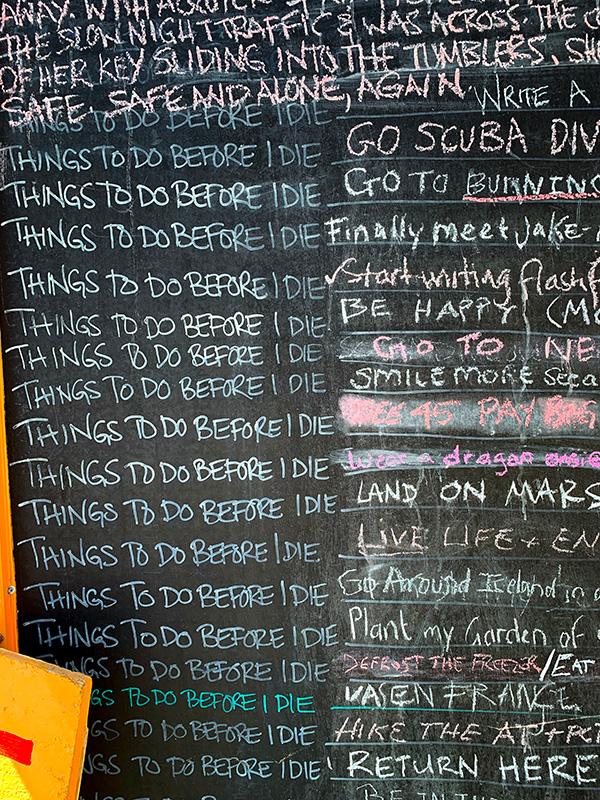 AWAY. WITH
THE SLOW NIGHT TRAFFIC & WAS ACROSS. THE
OF HER KEY SLIDING INTO THE TUMBLERS, SH
SAFE, SAFE AND ALONE, AGAIN
THINGS TO DO BEFORE I DIE WRITE A
THINGS TO DO BEFORE I DIE GO SCUBA DIV
THINGS TO DO BEFORE I DIE GO TO BURNING
THINGS TO DO BEFORE I DIE Finally meet Jake
THINGS TO DO BEFORE I DIE ✓Start writing flash
THINGS TO DO BEFORE I DIE BE HAPPY (MO
THINGS TO DO BEFORE I DIE GO TO NE
THINGS TO DO BEFORE I DIE SMILE MORE
THINGS TO DO BEFORE I DIE 45 PAY
THINGS TO DO BEFORE I DIE Wear a dragon onesie
THINGS TO DO BEFORE I DIE LAND ON MARS
THINGS TO DO BEFORE I DIE LIVE LIFE + EN
THINGS TO DO BEFORE I DIE Go Around Iceland in a
THINGS TO DO BEFORE I DIE Plant my Garden of
THINGS TO DO BEFORE I DIE DEFROST THE FREEZER/EAT
GS TO DO BEFORE I DIE
GS TO DO BEFORE I DIE HIKE THE AT + PCT
NGS TO DO BEFORE I DIE RETURN HERE
BE IN